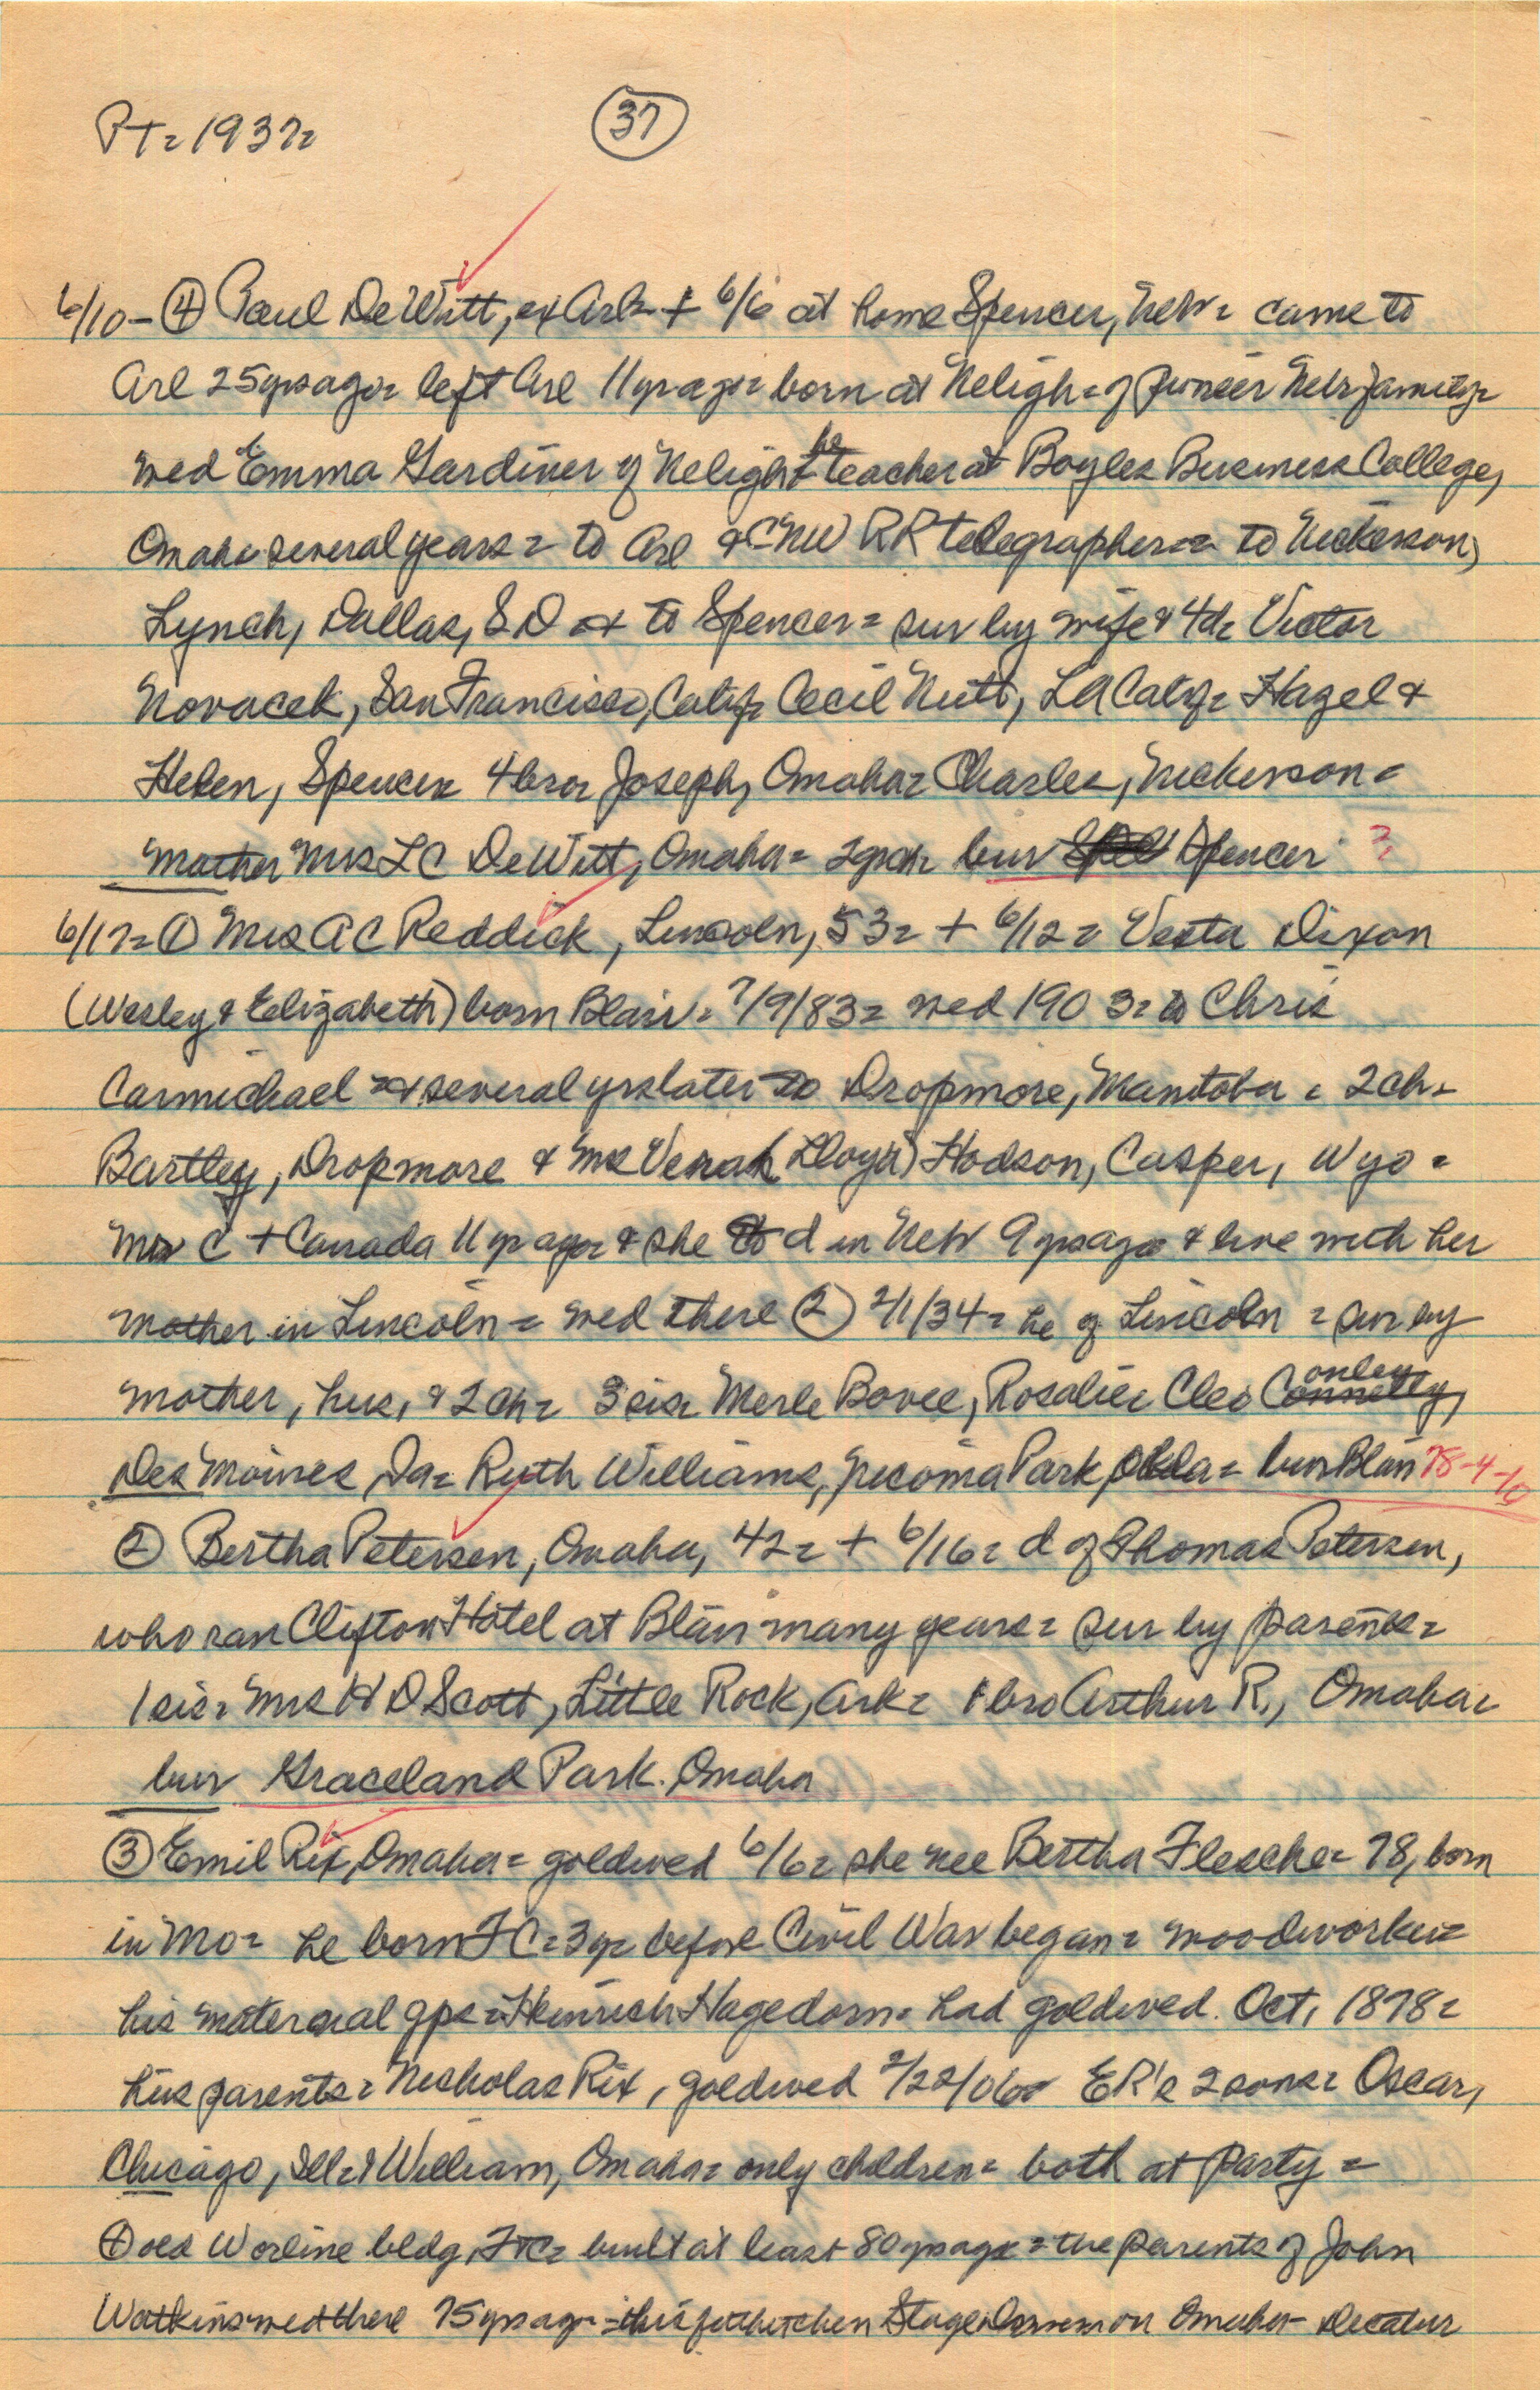 PT= 1937=
37
6/10- ④ Paul DeWitt, ex Arl= + 6/6 at home Spencer, Nebr= came to
Arl 25 yrs ago= left Arl 11 yr ago= born at Neligh= of pioneer Nebr family=
wed Emma Gardiner of Neligh= he teacher at Boyles Business College,
Omaha several years= to Arl & CNW RR telegrapher= to Nickerson,
Lynch, Dallas, S D & to Spencer= sur by wife & 4d= Victor
Novacek, San Francisco, Calif= Cecil Nutt, LA Calif= Hazel &
Helen, Spencer 4 bro= Joseph, Omaha= Charles, Nickerson=
mother Mrs L C DeWitt, Omaha= 2gch= bur Spencer ?
6/17= ① Mrs A C Reddick, Lincoln, 53= + 6/12= Vesta Dixon
(Wesley & Elizabeth) born Blair= 7/9/83= wed 1903= to Chris
Carmichael & several yrs later to Dropmore, Manitoba = 2ch=
Bartley, Dropmore & Mrs (Lloyd) Hodson, Casper, Wyo=
Mr C + Canada 11 yr ago= & she & d in Nebr 9 yrs ago & live with her
mother in Lincoln= wed there ② 2/1/34= he of Lincoln = sur by
mother, hus, & 2 ch= 3 sis= Merle Bovee, Rosalie= Cleo Conley,
Des Moines, Ia= Ruth Williams, Nicoma Park, Okla= bur Blair 78-4-10
② Bertha Petersen, Omaha, 42= + 6/16= d of Thomas Petersen,
who ran Clifton Hotel at Blair many years= sur by parents=
1 sis= Mrs H D Scott, Little Rock, Ark= 1 bro Arthur R., Omaha=
bur Graceland Park. Omaha
③ Emil Rix, Omaha= goldwed 6/6= she nee Bertha Flesche= 78, born
in Mo= he born F C= 3 yr before Civil War began= woodworker=
his maternal gps= Heinrich Hagedorn= had goldwed. Oct, 1878=
his parents= Nicholas Rix, goldwed 2/22/06= ER's 2 sons= Oscar,
Chicago, Ill= & William, Omaha= only children= both at party=
④ old Worline bldg, Ft C= built at least 80 yrs ago= the parents of John
Watkins wed there 75 yrs ago= his father then Stage on Omaha- Decatur